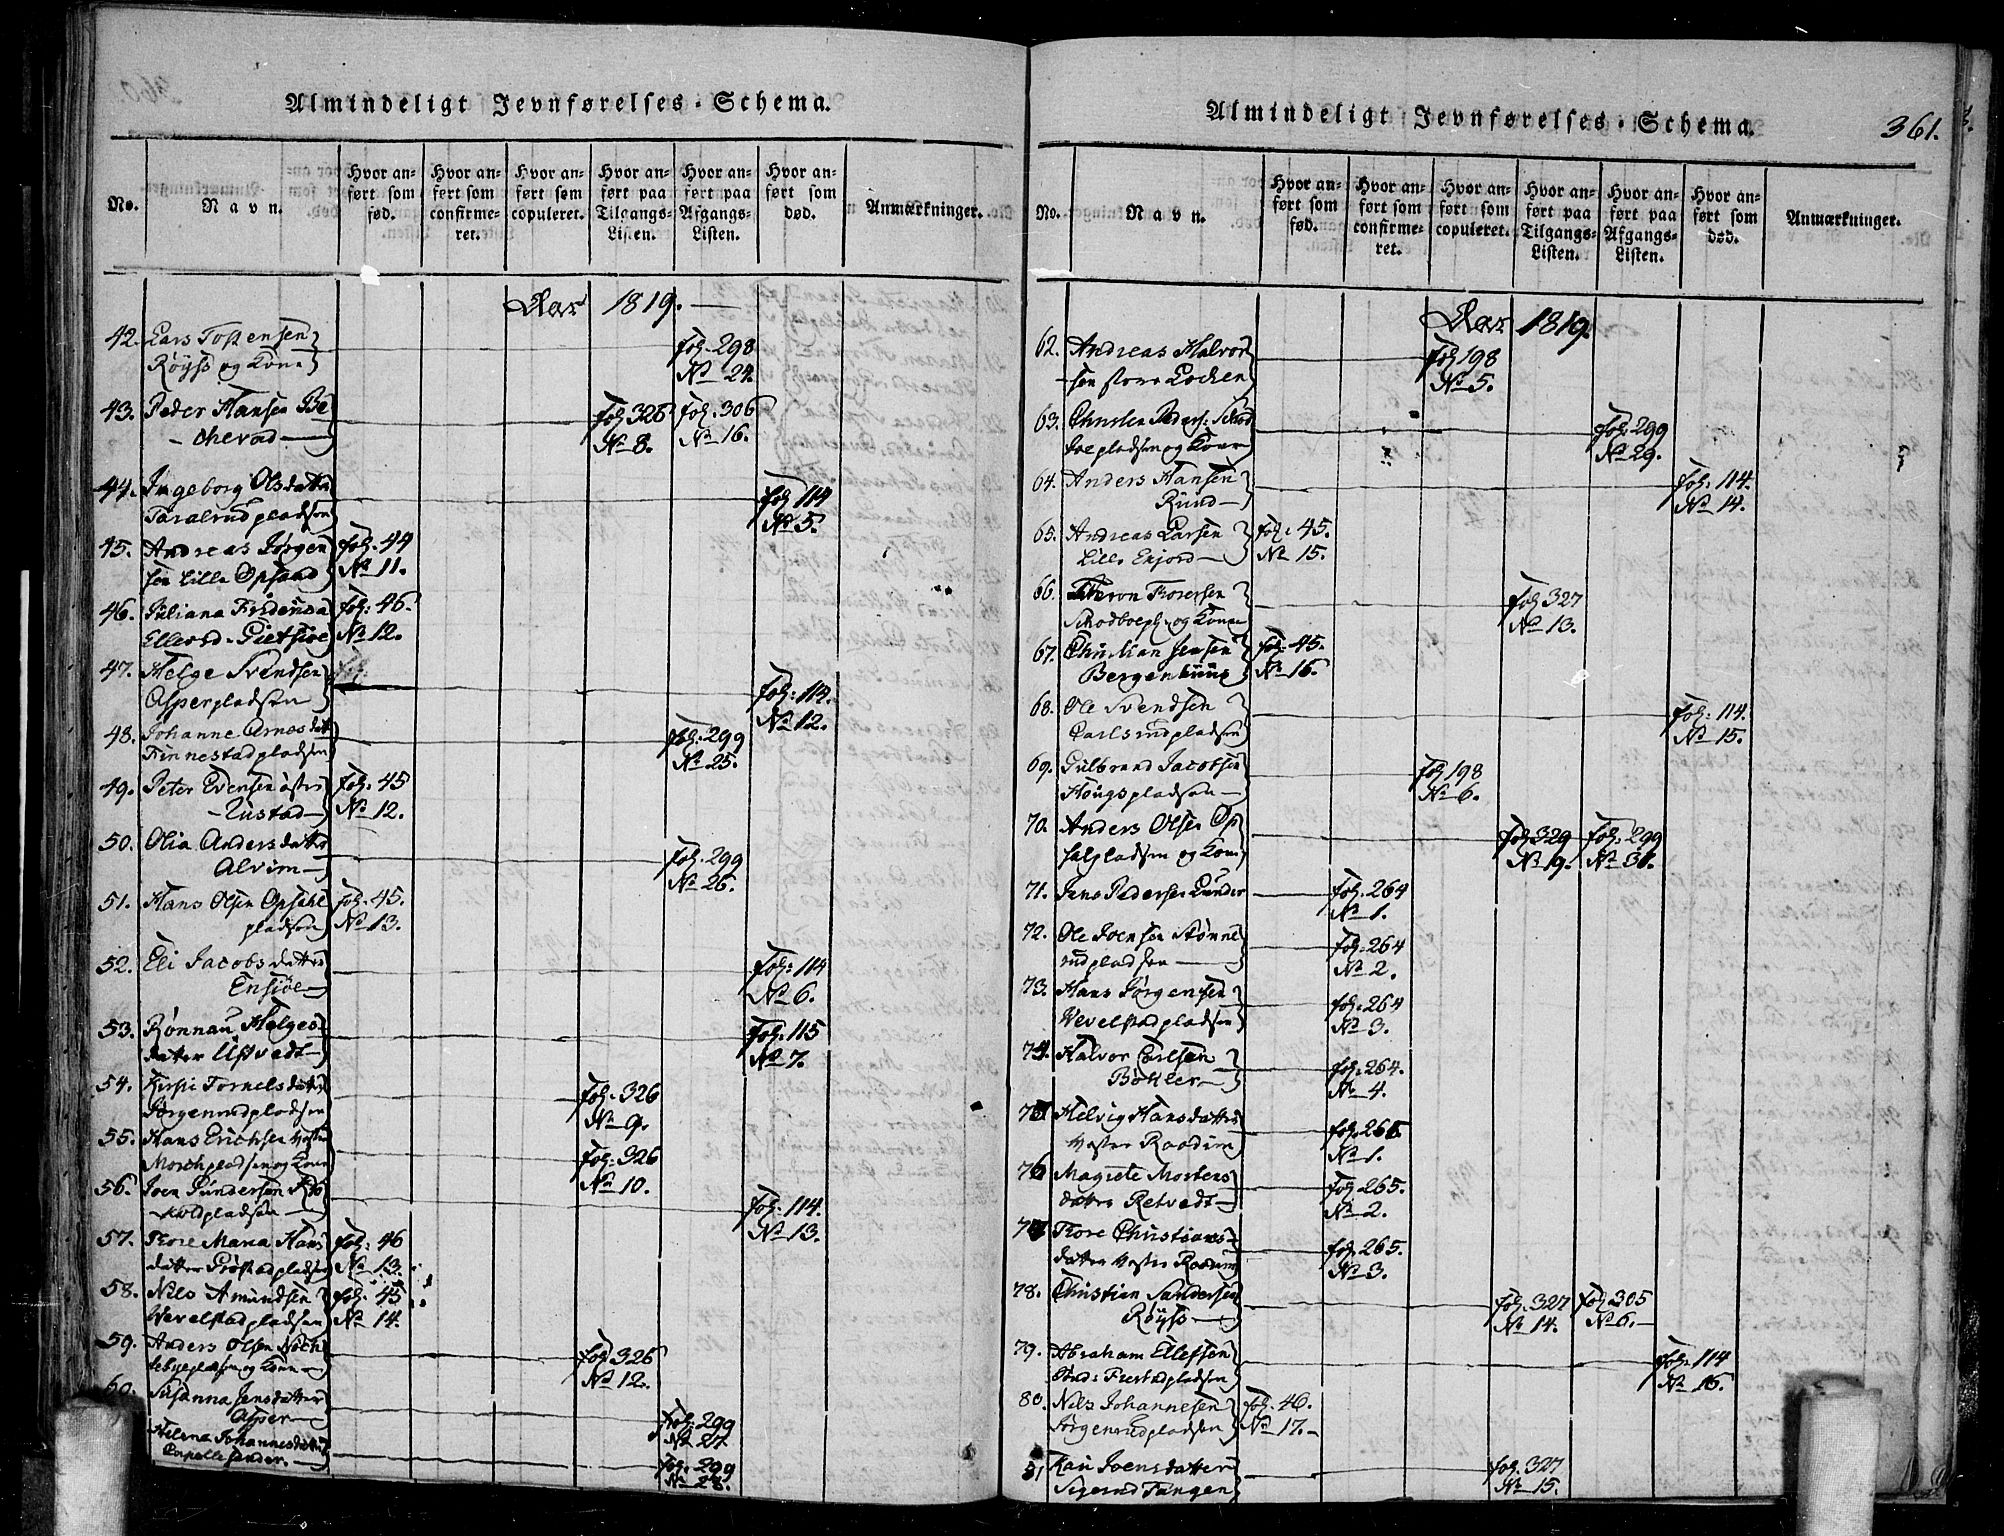 Almindeligt Jevnførelses-Schema.
No.
Navn.
Hvor anført som fød.
Hvor anført som confirmeret.
Hvor anført som copuleret.
Hvor anført paa Tilgangs-Listen.
Hvor anført paa Afgangs-Listen.
Hvor anført som død.
Anmærkninger.
Aar 1819.
42. Lars Tostensen
Røyss og Kone fol. 298
No 24.
43. Peder Hansen Be fol. 326 fol. 306
cherad No 8. No 16.
44. Ingeborg Olsdatter fol. 114
Taralrudpladsen No 5.
45. Andreas Jørgen fol. 44
sen Lille Opsand No 11.
46. Juliana Friderica fol: 46.
Ellevsd. No 12.
47. Helge Svendsen fol: 114.
Asperpladsen No 12.
48. Johanne Arnesdat fol. 299
Finnestadpladsen No 25.
49. Peter Evensen østre fol. 45
Rustad No 12.
50. Olia Andersdatter fol. 299
Alvim No 26.
51. Hans Olsen Opsahl fol. 45.
pladsen No 13.
52. Eli Jacobsdatter fol: 114
Ensiøe No 6.
53. Rønnau Helges fol: 115
datter Ustvedt No 7.
54. Kirsti Tornelsdatter fol. 326
Jørgenrudpladsen No 9.
55. Hans Erichsen fol: 326
Morchpladsen og Kone No 10.
56. Joen Gundersen fol. 114.
pladsen No 13.
57. Thore Maria Hans fol: 46
datter No 13.
58. Nils Amundsen fol. 45
Wevelstadpladsen No 14.
59. Anders Olsen fol. 326
og Kone No 12.
60. Susanna Jensdatter
Asper fol. 299
No 27
Helena Johannesdatter fol. 299
No 28.
Almindeligt Jevnførelses-Schema.
361.
No.
Navn.
Hvor anført som fød.
Hvor anført som confirmeret.
Hvor anført som copuleret.
Hvor anført paa Tilgangs-Listen.
Hvor anført paa Afgangs-Listen.
Hvor anført som død.
Anmærkninger.
Aar 1819.
62. Andreas Halvor fol. 198
sen store Lochen No 5.
63. Christen Peders: fol. 299
pladsen og Kone No 29.
64. Anders Hansen fol. 114.
Rund No 14.
65. Andreas Larsen fol. 45.
Lille Enjord No 15.
66. Thoresen fol 327
og Kone No 13.
67. Christian Jensen fol: 45.
No 16.
68. Ole Svendsen fol. 114.
Carlsrudpladsen No 15.
69. Gulbrand Jacobsen fol 198
Hougspladsen No 6.
70. Anders Olsen Op fol. 329 fol. 299
salpladsen og Kone No 9. No 31.
71. Jens Pedersen Lunder fol. 264
No 1.
72. Ole Joensen fol. 264
rudpladsen No 2.
73. Hans Jørgensen fol. 264
Wevelstadpladsen No 3.
74. Halvor Carlsen fol. 264.
Bøhler No 4.
75 Helvig Hansdatter fol. 265.
Vester Raadim No 1.
76 Magrete Mortens fol. 265.
datter Retvedt No 2.
77 Thore Christians- fol. 265.
datter Vester Raadim No 3.
78. Christian Sandersen fol. 327 fol. 305
Røyss No 14. No 6.
79. Abraham Ellefsen fol. 114
No 16.
80. Nils Johannesen fol. 46.
Jørgenrudpladsen No 17.
81 Kari Joensdatter fol. 327
Tangen No 15.